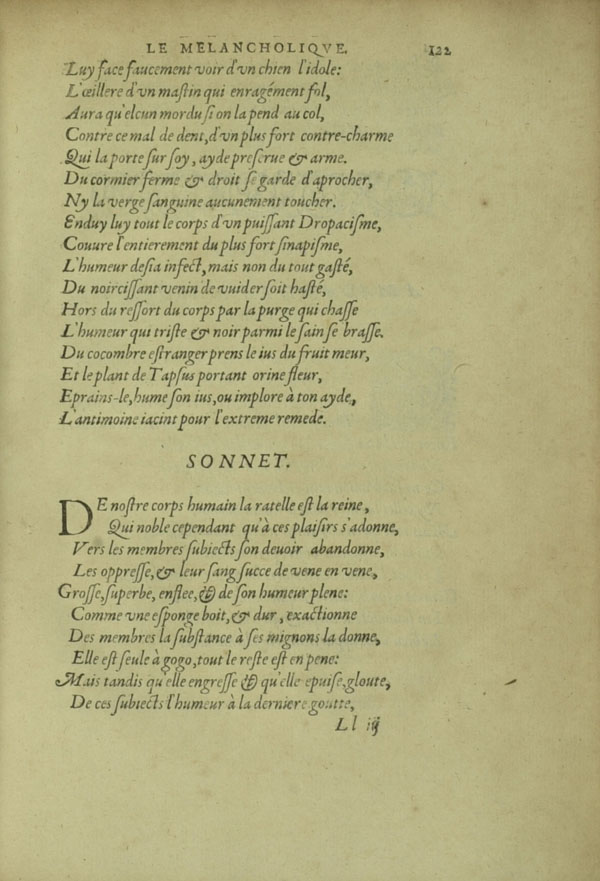 LE MELANCHOLIQVE. 122
Luy face faucement voir d'vn chien l'idole:
L'œillere d'vn mastin qui enragément fol,
Aura qu'elcun mordu si on la pend au col,
Contre ce mal de dent, d'vn plus fort contre-charme
Qui la porte sur soy, ayde preserue & arme.
Du cormier ferme & droit se garde d'aprocher,
Ny la verge sanguine aucunement toucher.
Enduy luy tout le corps d'vn puissant Dropacisme,
Couure l'entierement du plus fort sinapisme,
L'humeur desia infect, mais non du tout gasté,
Du noircissant venin de vuider soit hasté,
Hors du ressort du corps par la purge qui chasse
L'humeur qui triste & noir parmi le sain se brasse.
Du cocombre estranger prens le ius du fruit meur,
Et le plant de Tapsus portant orine fleur,
Eprains-le, hume son ius, ou implore à ton ayde,
L'antimoine iacint pour l'extreme remede.
SONNET.
DE nostre corps humain la ratelle est la reine,
Qui noble cependant qu'à ces plaisirs s'adonne,
Vers les membres subiects son deuoir abandonne,
Les oppresse, & leur sang succe de vene en vene,
Grosse, superbe, enflee, & de son humeur plene:
Comme vne esponge boit, & dur, exactionne
Des membres la substance à ses mignons la donne,
Elle est seule à gogo, tout le reste est en pene:
Mais tandis qu'elle engresse & qu'elle epuise, gloute,
De ces subiects l'humeur à la derniere goutte,
Ll iij